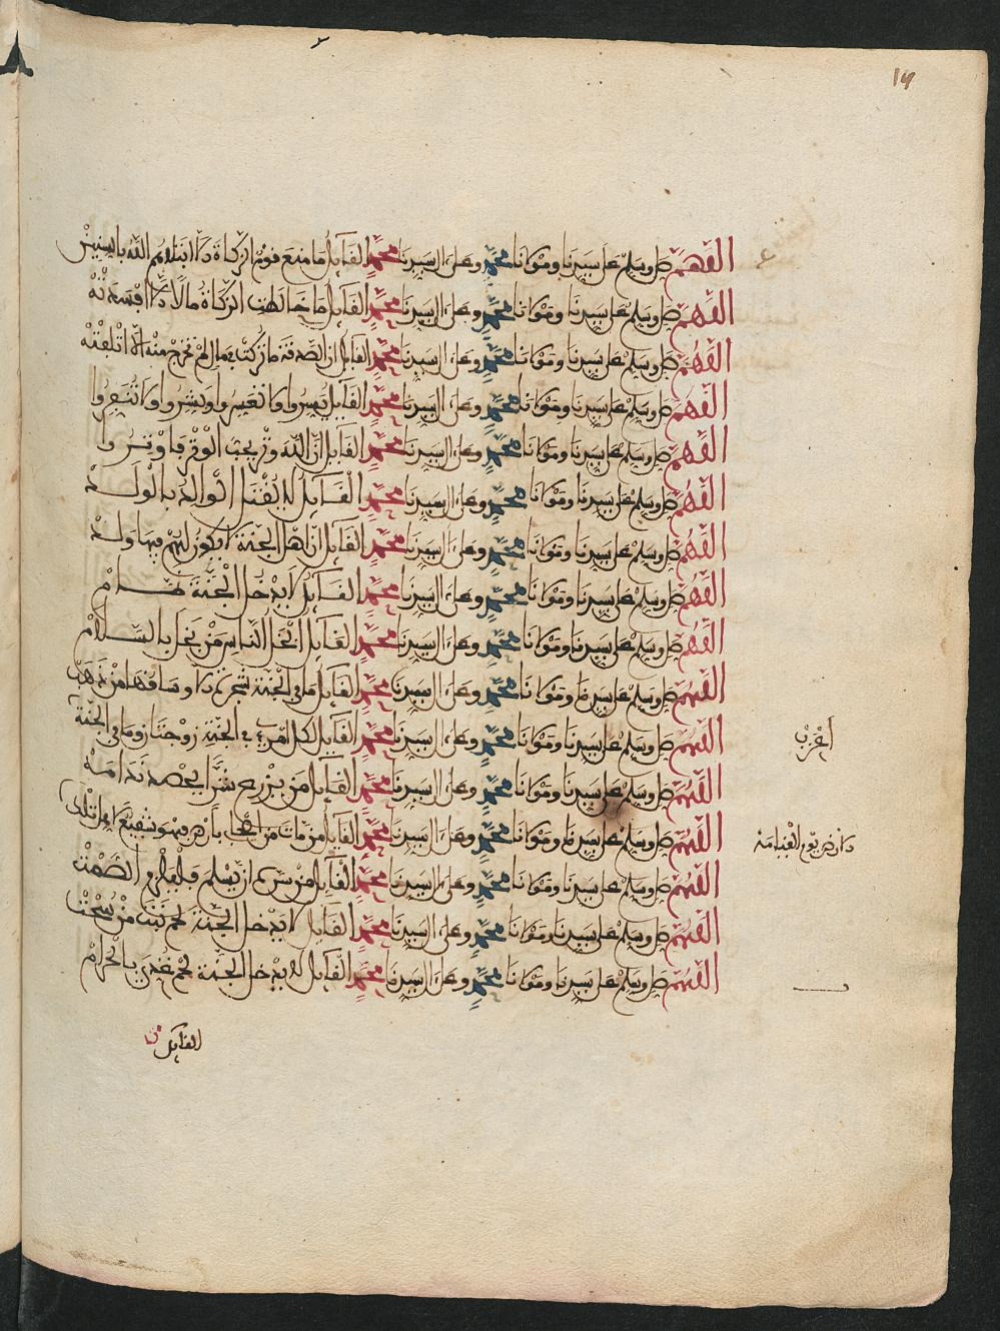 ١٩
اللهم صل وسلم على سيدنا ومولانا محمد وعلى ال سيدنا محمد القايل ما منع قوم الزكاة الا ابتلاهم الله بالسنين
اللهم صل وسلم على سيدنا ومولانا محمد وعلى ال سيدنا محمد القايل ما خالطت الزكاة مالا الا افسدته
اللهم صل وسلم على سيدنا ومولانا محمد وعلى ال سيدنا محمد القايل ان الصدقة ما زكت بمال لم تخرج منه الا اتلفته
اللهم صل وسلم على سيدنا ومولانا محمد وعلى ال سيدنا محمد القايل يسروا ولا تعسروا وبشروا ولا تنفروا
اللهم صل وسلم على سيدنا ومولانا محمد وعلى ال سيدنا محمد القايل ان الله وتر يحب الوتر فاوتروا
اللهم صل وسلم على سيدنا ومولانا محمد وعلى ال سيدنا محمد القايل لا يقتل الوالد بالولد
اللهم صل وسلم على سيدنا ومولانا محمد وعلى ال سيدنا محمد القايل ان اهل الجنة لا يكون لهم فيها ولد
اللهم صل وسلم على سيدنا ومولانا محمد وعلى ال سيدنا محمد القايل لا يدخل الجنة
اللهم صل وسلم على سيدنا ومولانا محمد وعلى ال سيدنا محمد القايل ابخل الناس من بخل بالسلام
اللهم صل وسلم على سيدنا ومولانا محمد وعلى ال سيدنا محمد القايل ما في الجنة شجرة الا وساقها من ذهب
اللهم صل وسلم على سيدنا ومولانا محمد وعلى ال سيدنا محمد القايل لكل امرئ في الجنة زوجتان وما في الجنة
اعزب
اللهم صل وسلم على سيدنا ومولانا محمد وعلى ال سيدنا محمد القايل من يزرع شرا يحصد ندامة
اللهم صل وسلم على سيدنا ومولانا محمد وعلى ال سيدنا محمد القايل من مات من بارض فهو شفيع لاهل تلك
الارض يوم القيامة
اللهم صل وسلم على سيدنا ومولانا محمد وعلى ال سيدنا محمد القايل من سره ان يسلم فليلزم الصمت
اللهم صل وسلم على سيدنا ومولانا محمد وعلى ال سيدنا محمد القايل لا يدخل الجنة لحم نبت من سحت
اللهم صل وسلم على سيدنا ومولانا محمد وعلى ال سيدنا محمد القايل لا يدخل الجنة لحم غذي بالحرام
القايل